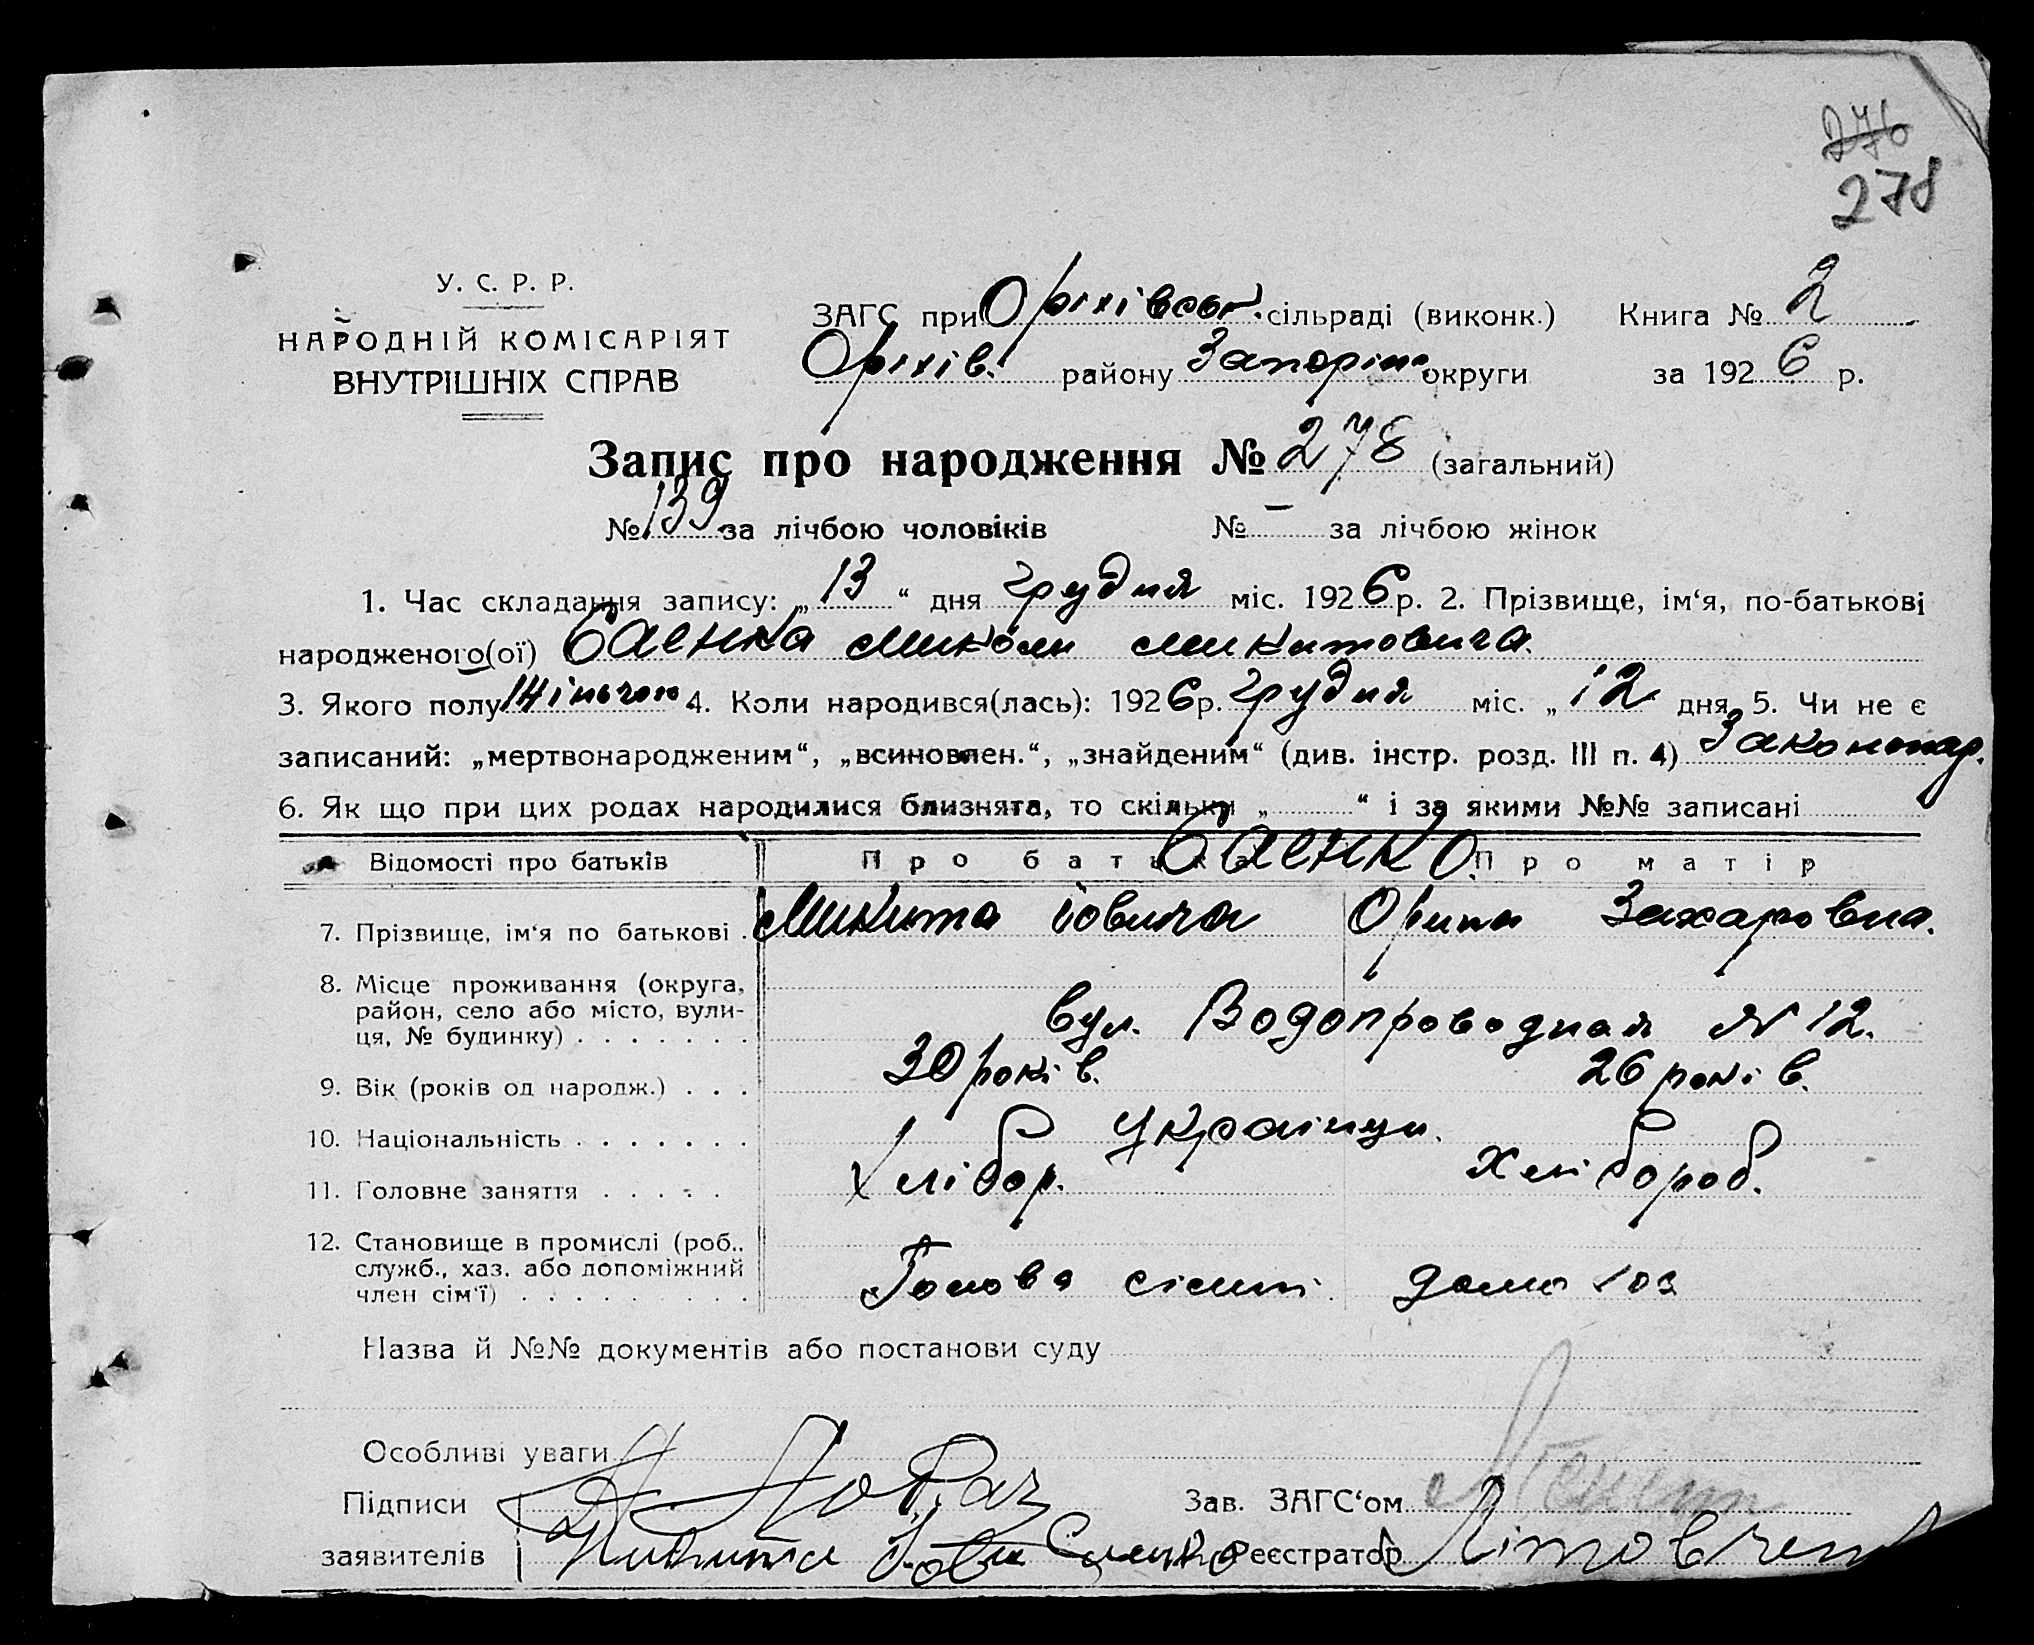 276
278
У. С. Р. Р.
НАРОДНІЙ КОМІСАРІЯТ
ВНУТРІШНІХ СПРАВ
ЗАГС при Оріхівськ. сільраді (виконк.) Книга № 2
Оріхів. району Запоріж. округи за 1926 р.
Запис про народження № 278 (загальний)
№ 139 за лічбою чоловіків № – за лічбою жінок
1. Час складання запису: „13“ дня грудня міс. 1926 р. 2. Прізвище, ім‘я, по-батькові
народженого(ої) Саєнка Миколи Микитовича.
3. Якого полу 4. Коли народився(лась): 1926 р. грудня міс. „12 дня 5. Чи не є
записаний: „мертвонародженим“, „всиновлен.“, „знайденим“ (див. інстр. розд. III п. 4)
6. Як що при цих родах народилися близнята, то скільки „ “ і за якими №№ записані
Відомості про батьків Про батька Саєнко. Про матір
7. Прізвище, ім‘я по батькові . Микита Іовича Орина Захаровна.
8. Місце проживання (округа,
район, село або місто, вули-
ця, № будинку) . . . . . . . вул. Водопроводная № 12.
9. Вік (років од народж.) . . . 30 років. 26 років.
10. Національність . . . . . . . Українци.
11. Головне заняття . . . . . Хлібор. Хлібороб.
12. Становище в промислі (роб.,
служб., хаз. або допоміжний
член сім‘ї) . . . . . . . . . Голова сімї. домо хоз
Назва й №№ документів або постанови суду
Особливі уваги
Підписи Зав. ЗАГС‘ом
заявителів Никита Саенко Реєстратор Літовчен